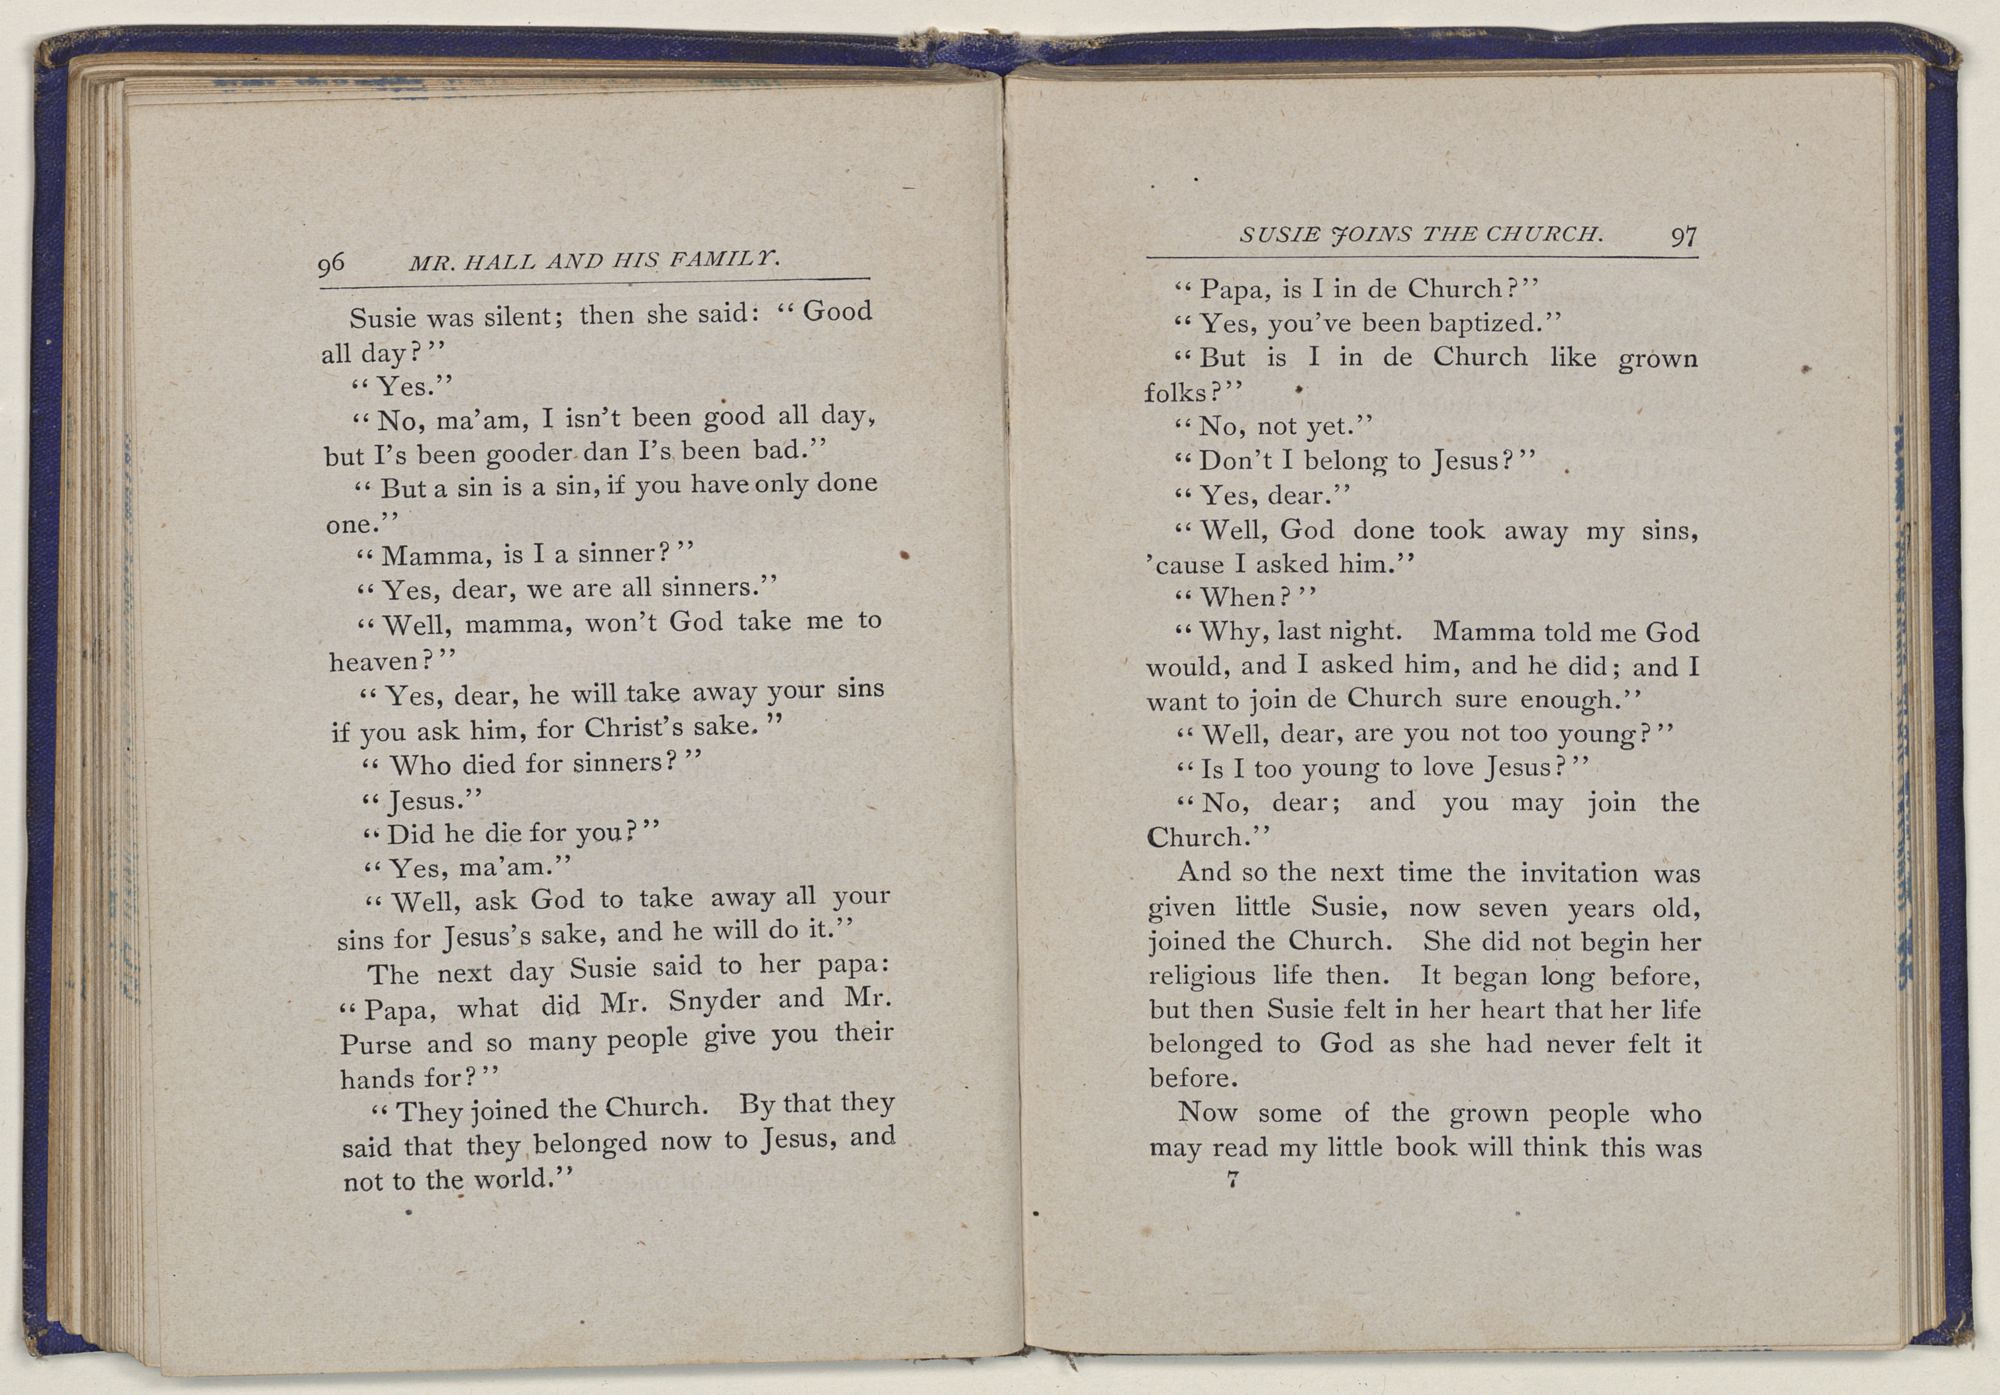 96 MR. HALL AND HIS FAMILY.
Susie was silent; then she said: “Good
all day?”
“Yes.”
“No, ma’am, I isn’t been good all day,
but I’s been gooder dan I’s been bad.”
“But a sin is a sin, if you have only done
one.”
“Mamma, is I a sinner?”
“Yes, dear, we are all sinners.”
“Well, mamma, won’t God take me to
heaven?”
“Yes, dear, he will take away your sins
if you ask him, for Christ’s sake.”
“Who died for sinners?”
“Jesus.”
“Did he die for you?”
“Yes, ma’am.”
“Well, ask God to take away all your
sins for Jesus’s sake, and he will do it.”
The next day Susie said to her papa:
“Papa, what did Mr. Snyder and Mr.
Purse and so many people give you their
hands for?”
“They joined the Church. By that they
said that they belonged now to Jesus, and
not to the world.”
SUSIE JOINS THE CHURCH. 97
“Papa, is I in de Church?”
“Yes, you’ve been baptized.”
“But is I in de Church like grown
folks?”
“No, not yet.”
“Don’t I belong to Jesus?”
“Yes, dear.”
“Well, God done took away my sins,
’cause I asked him.”
“When?”
“Why, last night. Mamma told me God
would, and I asked him, and he did; and I
want to join de Church sure enough.”
“Well, dear, are you not too young?”
“Is I too young to love Jesus?”
“No, dear; and you may join the
Church.”
And so the next time the invitation was
given little Susie, now seven years old,
joined the Church. She did not begin her
religious life then. It began long before,
but then Susie felt in her heart that her life
belonged to God as she had never felt it
before.
Now some of the grown people who
may read my little book will think this was
7